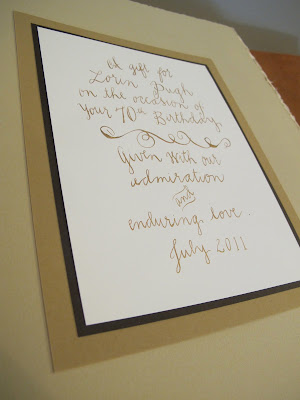 A gift for
Lorin Pugh
on the occasion of
Your 70th Birthday.
Given With our
admiration
and
enduring love.
July 2011